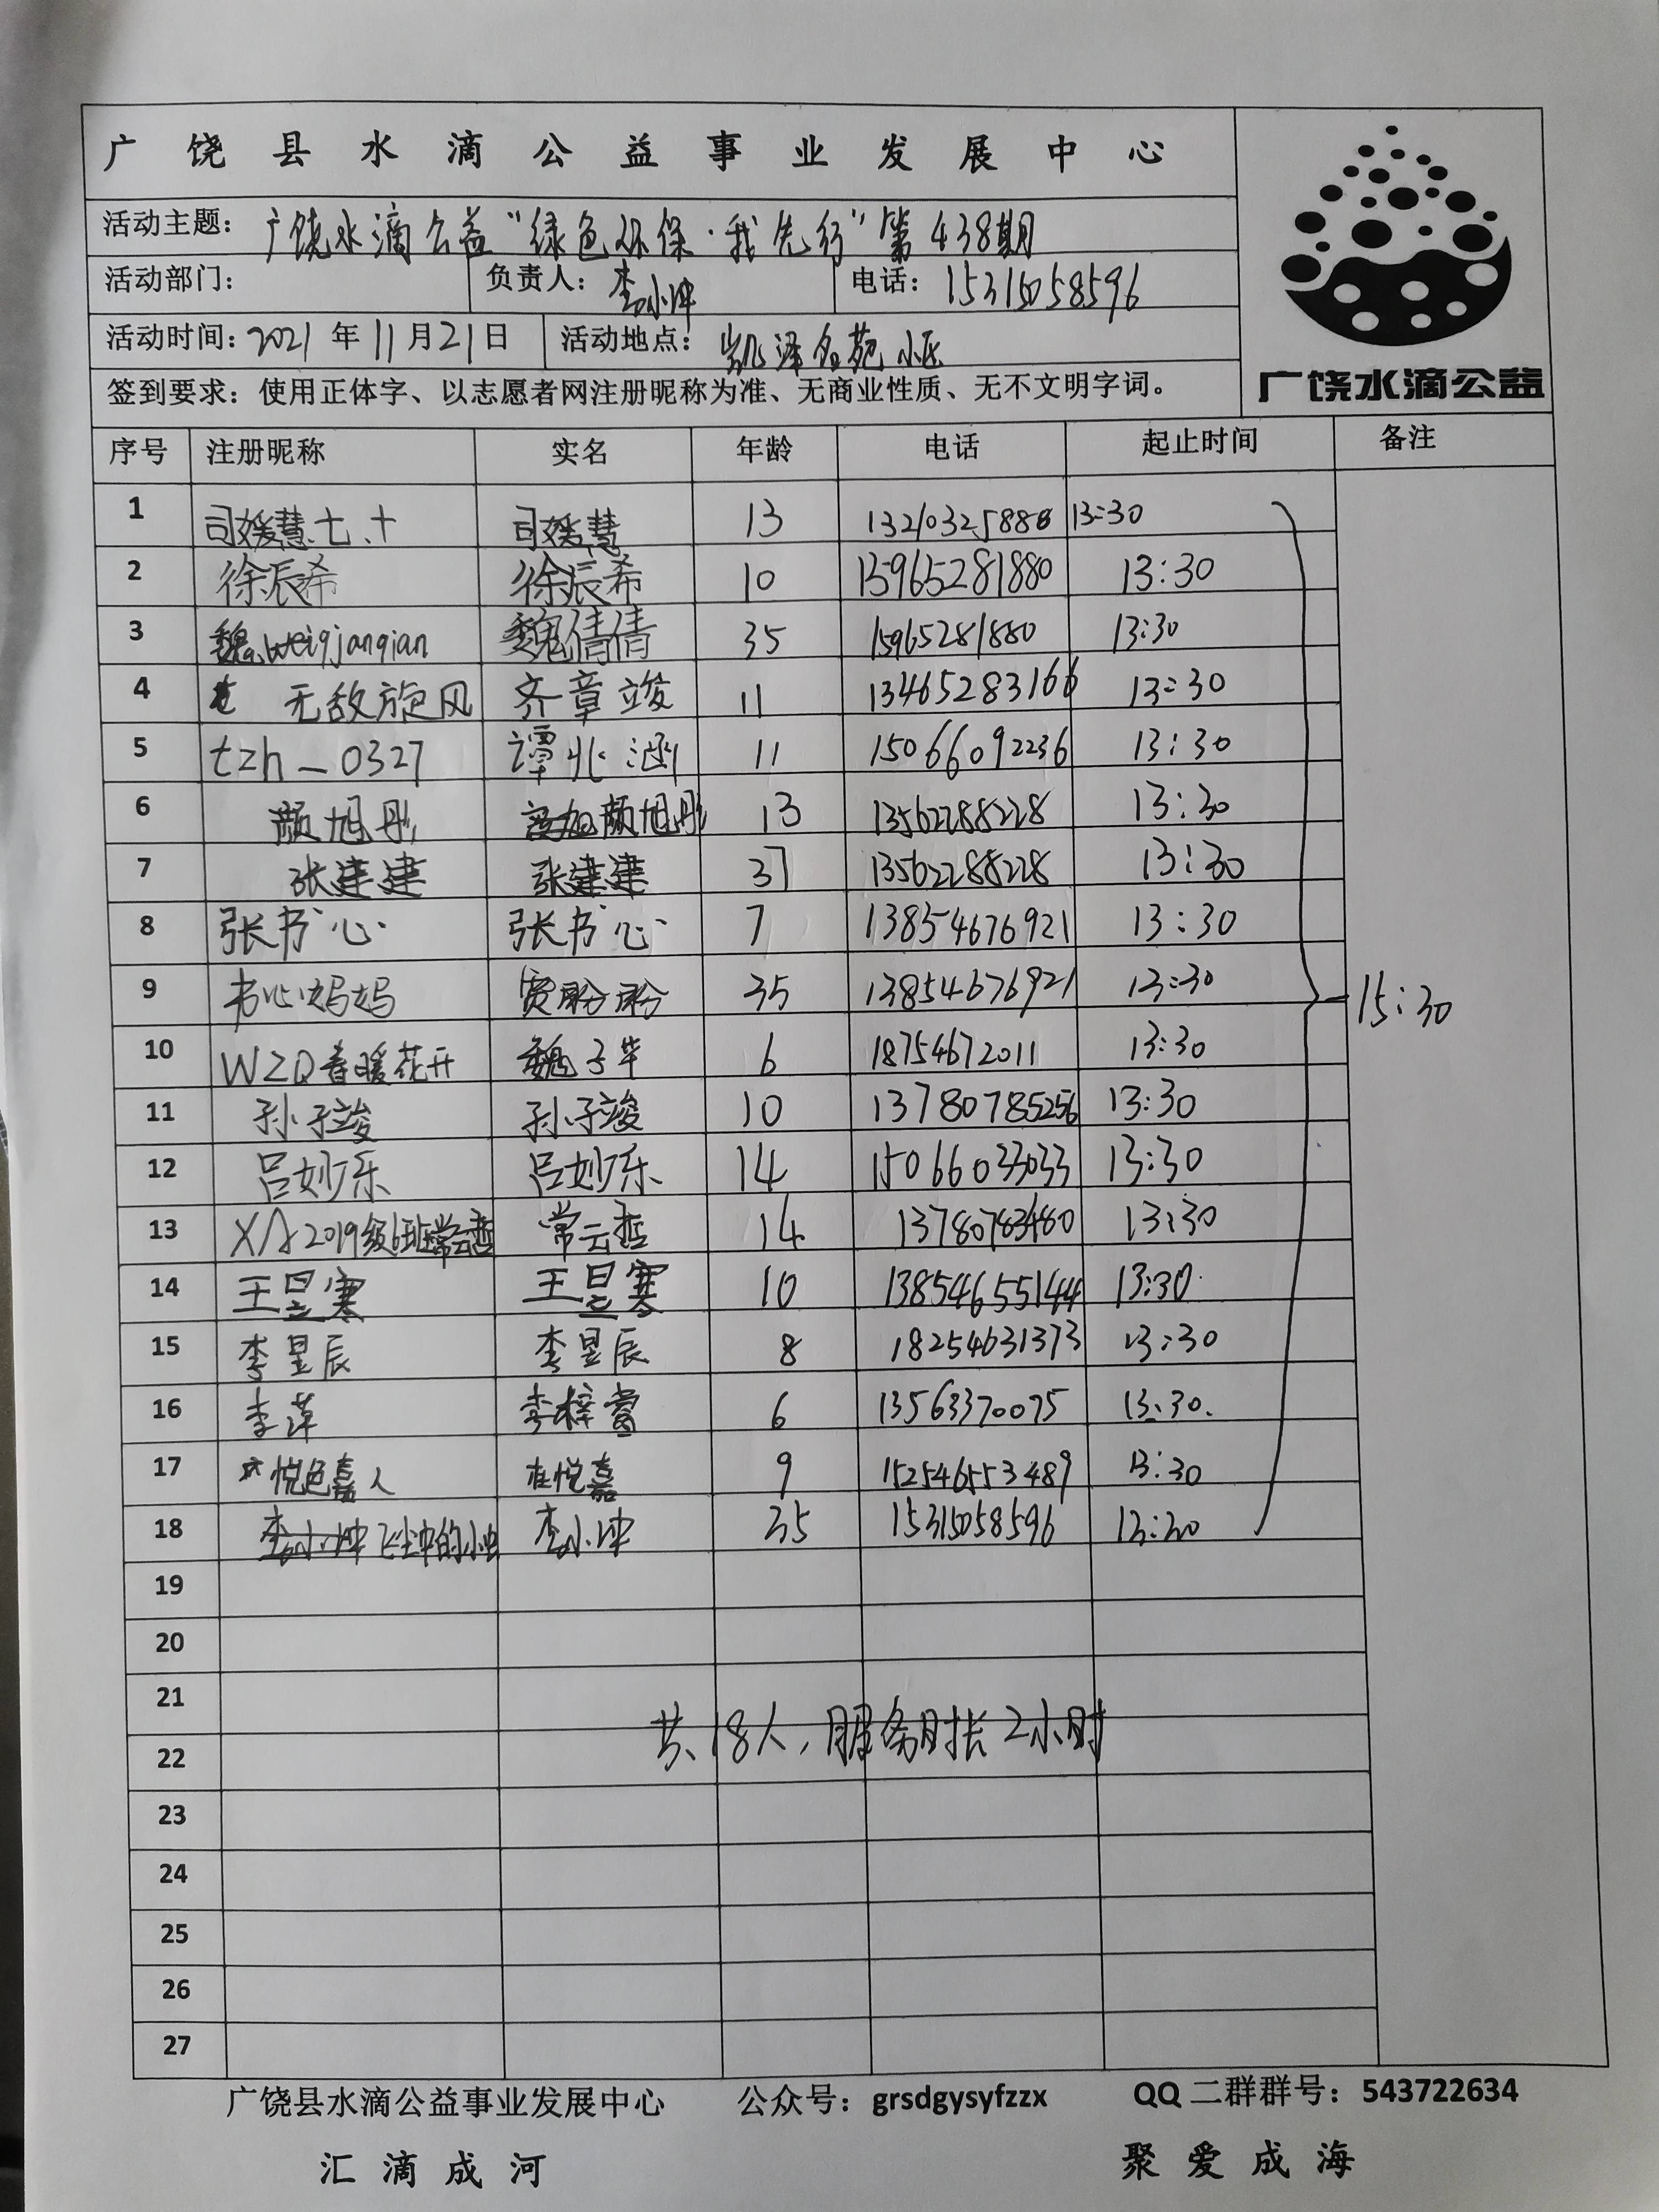 广饶县水滴公益事业发展中心
活动主题：广饶水滴公益“绿色环保·我先行”第438期
活动部门： 负责人：李小冲 电话：15315058596
活动时间：2021年11月21日 活动地点：凯泽名苑小区
签到要求：使用正体字、以志愿者网注册昵称为准、无商业性质、无不文明字词。
广饶水滴公益
序号 注册昵称 实名 年龄 电话 起止时间 备注
1 司媛慧七.十 司媛慧 13 13:30
2 徐辰希 徐辰希 10 15965281880 13:30
3 魏weiqianqian 魏倩倩 35 15965281880 13:30
4 无敌旋风 齐章竣 11 13465283166 13:30
5 tzh_0327 谭兆涵 11 15066092236 13:30
6 颜旭彤 颜旭彤 13 13562288228 13:30
7 张建建 张建建 37 13562288228 13:30
8 张书心 张书心 7 13854676921 13:30
9 书心妈妈 贾盼盼 35 13854676921 13:30
15:30
10 WZQ春暖花开 魏子华 6 18754672011 13:30
11 孙子竣 孙子竣 10 13780785256 13:30
12 吕妙乐 吕妙乐 14 15066033033 13:30
13 2019级6班常云哲 常云哲 14 13780783480 13:30
14 王昱骞 王昱骞 10 13854655144 13:30
15 李昱辰 李昱辰 8 18254631373 13:30
16 李萍 李梓萱 6 13563370075 13:30.
17 悦色嘉人 悦嘉 9 152546553489 13:30
18 李小冲 飞尘中的小虫 李小冲 35 15315058596 13:30
19
20
21
共18人，服务时长2小时
22
23
24
25
26
27
广饶县水滴公益事业发展中心 公众号：grsdgysyfzzx QQ二群群号：543722634
汇滴成河 聚爱成海